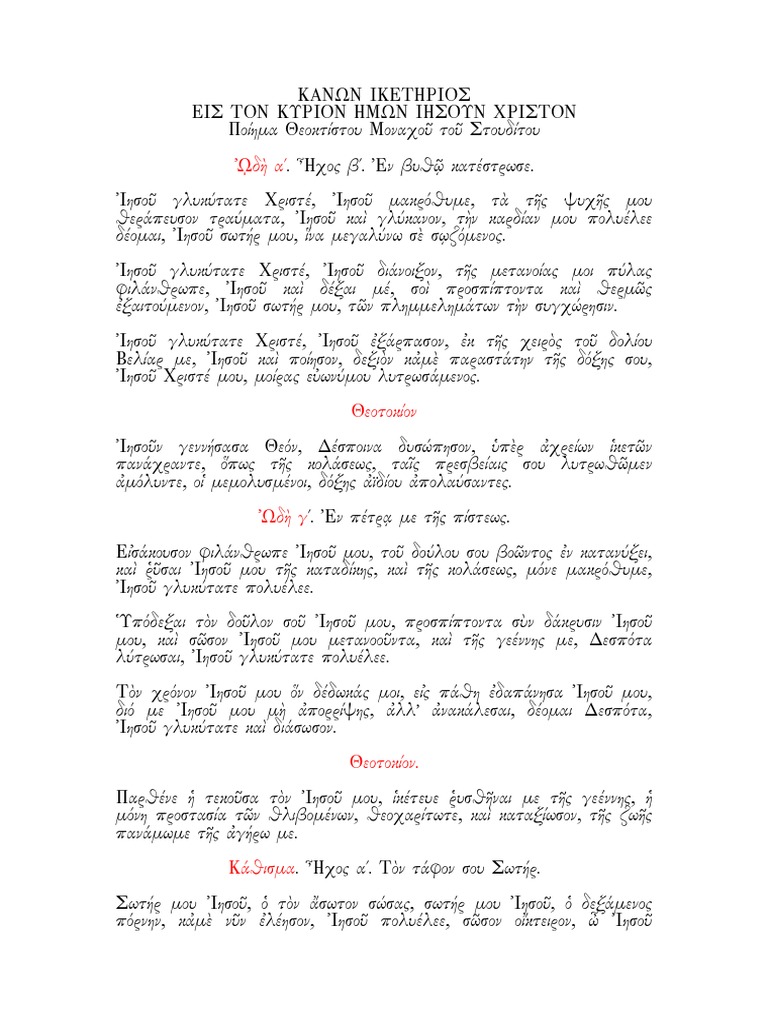 ΚΑΝΩΝ ΙΚΕΤΗΡΙΟΣ
ΕΙΣ ΤΟΝ ΚΥΡΙΟΝ ΗΜΩΝ ΙΗΣΟΥΝ ΧΡΙΣΤΟΝ
Ποίημα Θεοκτίστου Μοναχοῦ τοῦ Στουδίτου
ᾨδὴ α΄. Ἦχος β΄. Ἐν βυθῷ κατέστρωσε.
Ἰησοῦ γλυκύτατε Χριστέ, Ἰησοῦ μακρόθυμε, τὰ τῆς ψυχῆς μου
θεράπευσον τραύματα, Ἰησοῦ καὶ γλύκανον, τὴν καρδίαν μου πολυέλεε
δέομαι, Ἰησοῦ σωτήρ μου, ἵνα μεγαλύνω σὲ σῳζόμενος.
Ἰησοῦ γλυκύτατε Χριστέ, Ἰησοῦ διάνοιξον, τῆς μετανοίας μοι πύλας
φιλάνθρωπε, Ἰησοῦ καὶ δέξαι μέ, σοὶ προσπίπτοντα καὶ θερμῶς
ἐξαιτούμενον, Ἰησοῦ σωτήρ μου, τῶν πλημμελημάτων τὴν συγχώρησιν.
Ἰησοῦ γλυκύτατε Χριστέ, Ἰησοῦ ἐξάρπασον, ἐκ τῆς χειρὸς τοῦ δολίου
Βελίαρ με, Ἰησοῦ καὶ ποίησον, δεξιὸν κἀμὲ παραστάτην τῆς δόξης σου,
Ἰησοῦ Χριστέ μου, μοίρας εὐωνύμου λυτρωσάμενος.
Θεοτοκίον
Ἰησοῦν γεννήσασα Θεόν, Δέσποινα δυσώπησον, ὑπὲρ ἀχρείων ἱκετῶν
πανάχραντε, ὅπως τῆς κολάσεως, ταῖς πρεσβείαις σου λυτρωθῶμεν
ἀμόλυντε, οἱ μεμολυσμένοι, δόξης ἀϊδίου ἀπολαύσαντες.
ᾨδὴ γ΄. Ἐν πέτρᾳ με τῆς πίστεως.
Εἰσάκουσον φιλάνθρωπε Ἰησοῦ μου, τοῦ δούλου σου βοῶντος ἐν κατανύξει,
καὶ ῥῦσαι Ἰησοῦ μου τῆς καταδίκης, καὶ τῆς κολάσεως, μόνε μακρόθυμε,
Ἰησοῦ γλυκύτατε πολυέλεε.
Ὑπόδεξαι τὸν δοῦλον σοῦ Ἰησοῦ μου, προσπίπτοντα σὺν δάκρυσιν Ἰησοῦ
μου, καὶ σῶσον Ἰησοῦ μου μετανοοῦντα, καὶ τῆς γεέννης με, Δεσπότα
λύτρωσαι, Ἰησοῦ γλυκύτατε πολυέλεε.
Τὸν χρόνον Ἰησοῦ μου ὅν δέδωκάς μοι, εἰς πάθη ἐδαπάνησα Ἰησοῦ μου,
διό με Ἰησοῦ μου μὴ ἀπορρίψης, ἀλλ’ ἀνακάλεσαι, δέομαι Δεσπότα,
Ἰησοῦ γλυκύτατε καὶ διάσωσον.
Θεοτοκίον.
Παρθένε ἡ τεκοῦσα τὸν Ἰησοῦ μου, ἱκέτευε ῥυσθῆναι με τῆς γεέννης, ἡ
μόνη προστασία τῶν θλιβομένων, θεοχαρίτωτε, καὶ καταξίωσον, τῆς ζωῆς
πανάμωμε τῆς ἀγήρω με.
Κάθισμα. Ἦχος α΄. Τὸν τάφον σου Σωτήρ.
Σωτήρ μου Ἰησοῦ, ὁ τὸν ἄσωτον σώσας, σωτήρ μου Ἰησοῦ, ὁ δεξάμενος
πόρνην, κἀμὲ νῦν ἐλέησον, Ἰησοῦ πολυέλεε, σῶσον οἴκτειρον, ὦ Ἰησοῦ